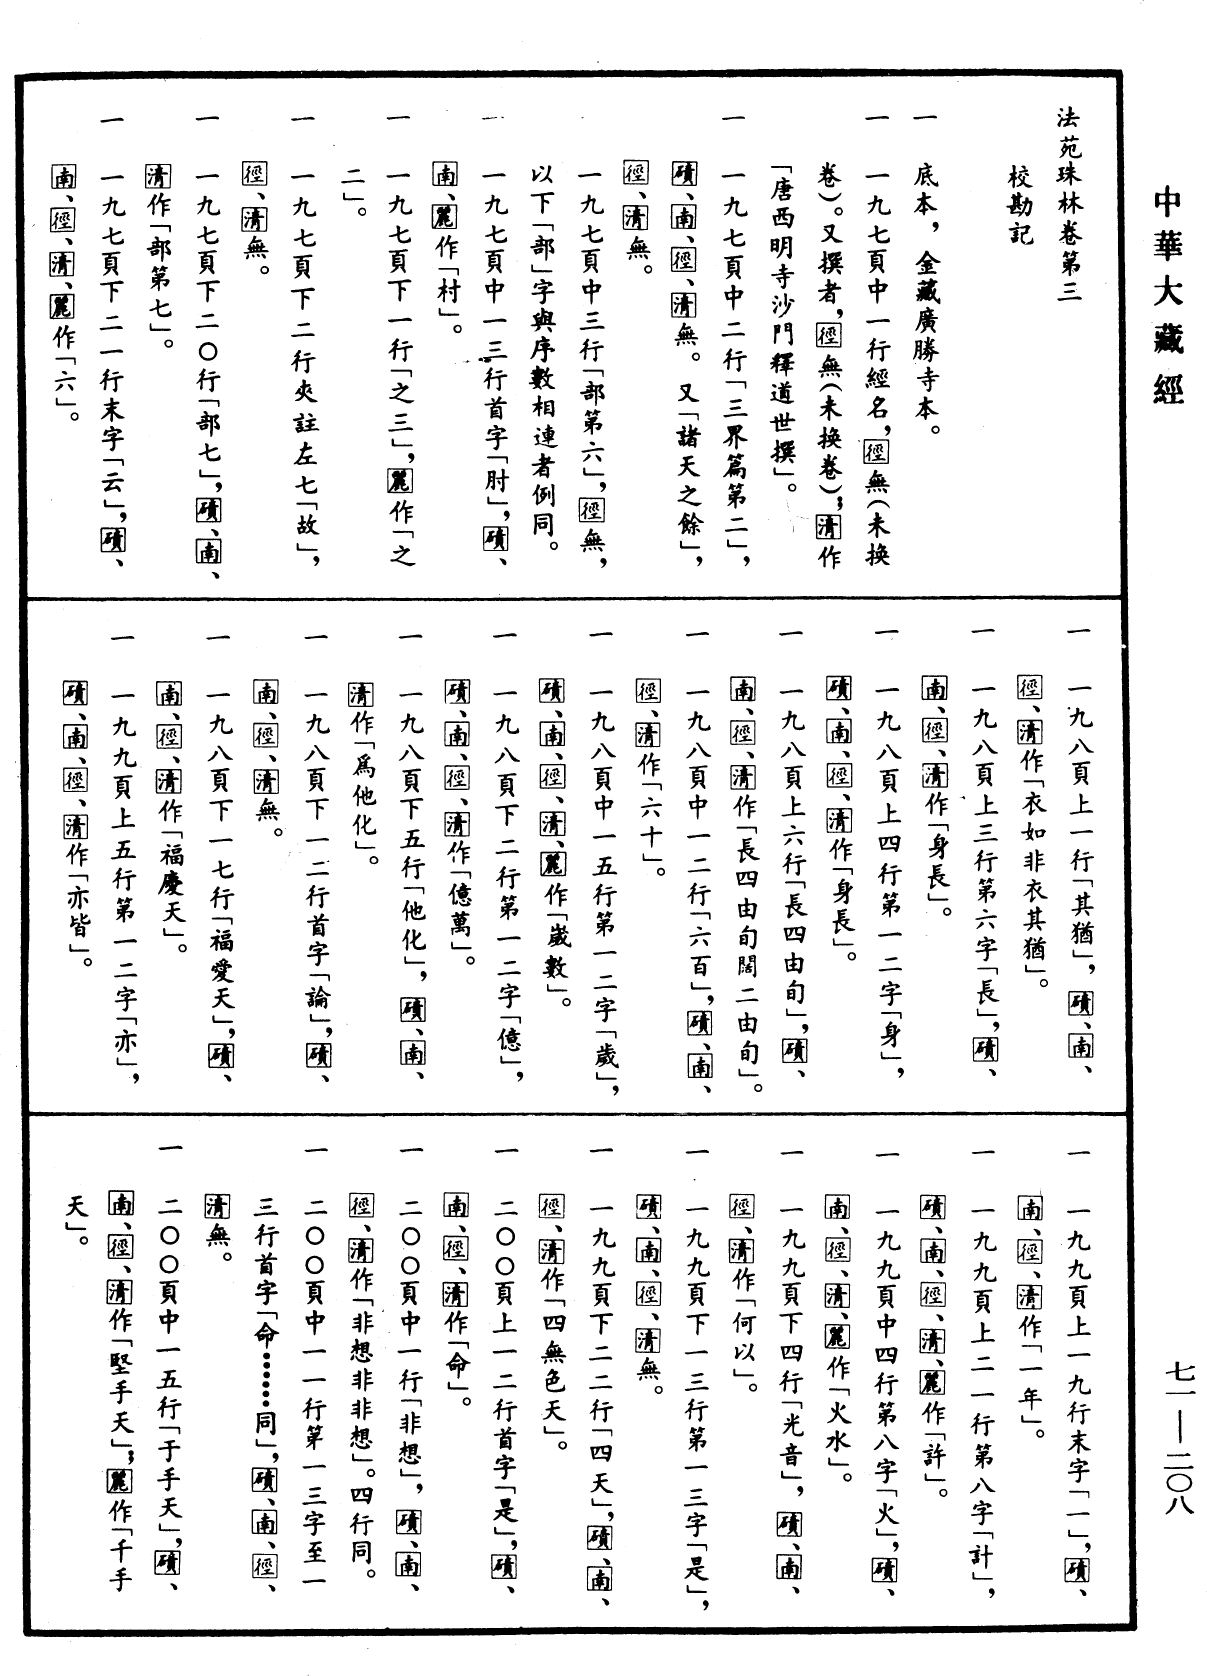 中華大藏經
法苑珠林卷第三
校勘記
一　底本，金藏廣勝寺本。
一　一九七頁中一行經名，徑無（未换
卷）。又撰者，徑無（未换卷）；清作
「唐西明寺沙門釋道世撰」。
一　一九七頁中二行「三界篇第二」，
磧、南、徑、清無。又「諸天之餘」，
徑、清無。
一　一九七頁中三行「部第六」，徑無，
以下「部」字與序數相連者例同。
一　一九七頁中一三行首字「肘」，磧、
南、麗作「村」。
一　一九七頁下一行「之三」，麗作「之
二」。
一　一九七頁下二行夾註左七「故」，
徑、清無。
一　一九七頁下二〇行「部七」，磧、南、
清作「部第七」。
一　一九七頁下二一行末字「云」，磧、
南、徑、清、麗作「六」。
一　一九八頁上一行「其猶」，磧、南、
徑、清作「衣如非衣其猶」。
一　一九八頁上三行第六字「長」，磧、
南、徑、清作「身長」。
一　一九八頁上四行第一二字「身」，
磧、南、徑、清作「身長」。
一　一九八頁上六行「長四由旬」，磧、
南、徑、清作「長四由旬闊二由旬」。
一　一九八頁中一二行「六百」，磧、南、
徑、清作「六十」。
一　一九八頁中一五行第一二字「歲」，
磧、南、徑、清、麗作「歲數」。
一　一九八頁下二行第一二字「億」，
磧、南、徑、清作「億萬」。
一　一九八頁下五行「他化」，磧、南、
清作「爲他化」。
一　一九八頁下一二行首字「論」，磧、
南、徑、清無。
一　一九八頁下一七行「福愛天」，磧、
南、徑、清作「福慶天」。
一　一九九頁上五行第一二字「亦」，
磧、南、徑、清作「亦皆」。
一　一九九頁上一九行末字「一」，磧、
南、徑、清作「一年」。
一　一九九頁上二一行第八字「計」，
磧、南、徑、清、麗作「許」。
一　一九九頁中四行第八字「火」，磧、
南、徑、清、麗作「火水」。
一　一九九頁下四行「光音」，磧、南、
徑、清作「何以」。
一　一九九頁下一三行第一三字「是」，
磧、南、徑、清無。
一　一九九頁下二二行「四天」，磧、南、
徑、清作「四無色天」。
一　二〇〇頁上一二行首字「是」，磧、
南、徑、清作「命」。
一　二〇〇頁中一行「非想」，磧、南、
徑、清作「非想非非想」。四行同。
一　二〇〇頁中一一行第一三字至一
三行首字「命……同」，磧、南、徑、
清無。
一　二〇〇頁中一五行「于手天」，磧、
南、徑、清作「堅手天」；麗作「千手
天」。
七一—二〇八